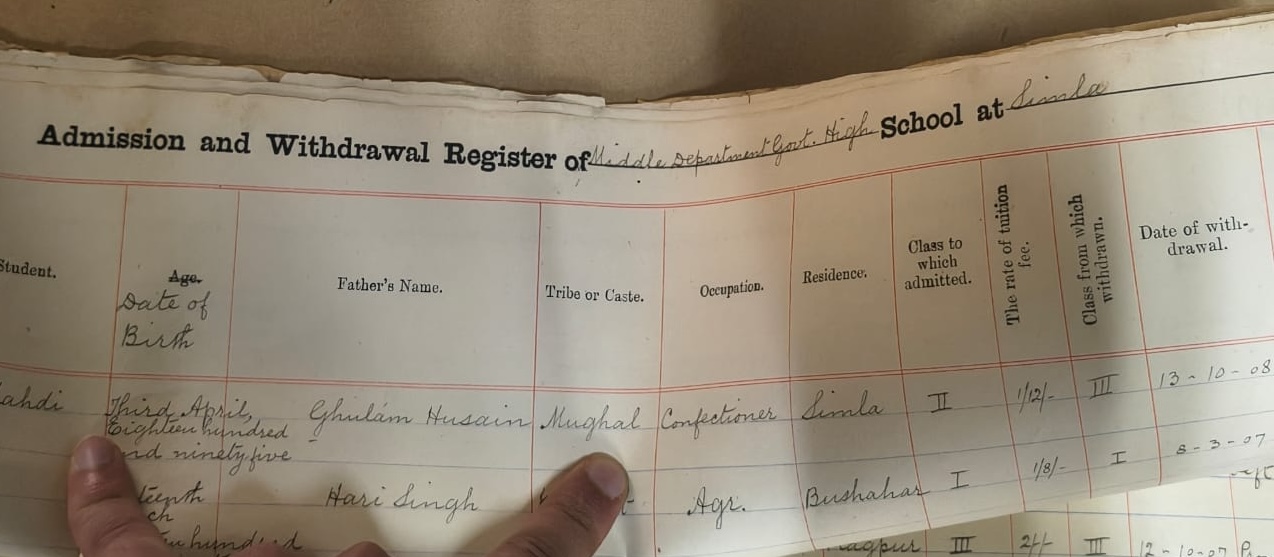 Admission and Withdrawal Register of Middle Department Govt. High School at Simla
Student.
Age.
Date of
Birth
Father's Name.
Tribe or Caste.
Occupation.
Residence.
Class to
which
admitted.
The rate of tuition
fee.
Class from which
withdrawn.
Date of with-
drawal.
ahdi
Third April,
Eighteen hundred
and ninety five
Ghulám Husain
Mughal
Confectioner
Simla
II
1/12/-
III
13-10-08
teenth
ch
hundred
Hari Singh
Agr.
Bushahar
I
1/8/-
I
8-3-07
agpur
III
2/-/-
III
12-10-07